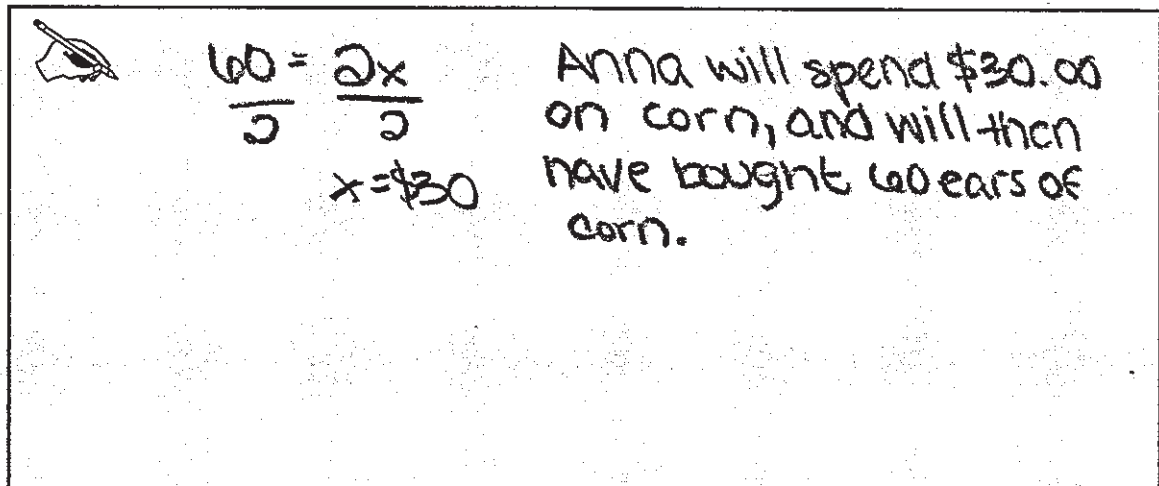 60 = 2x
2 2
x = $30
Anna will spend $30.00
on corn, and will then
have bought 60 ears of
corn.